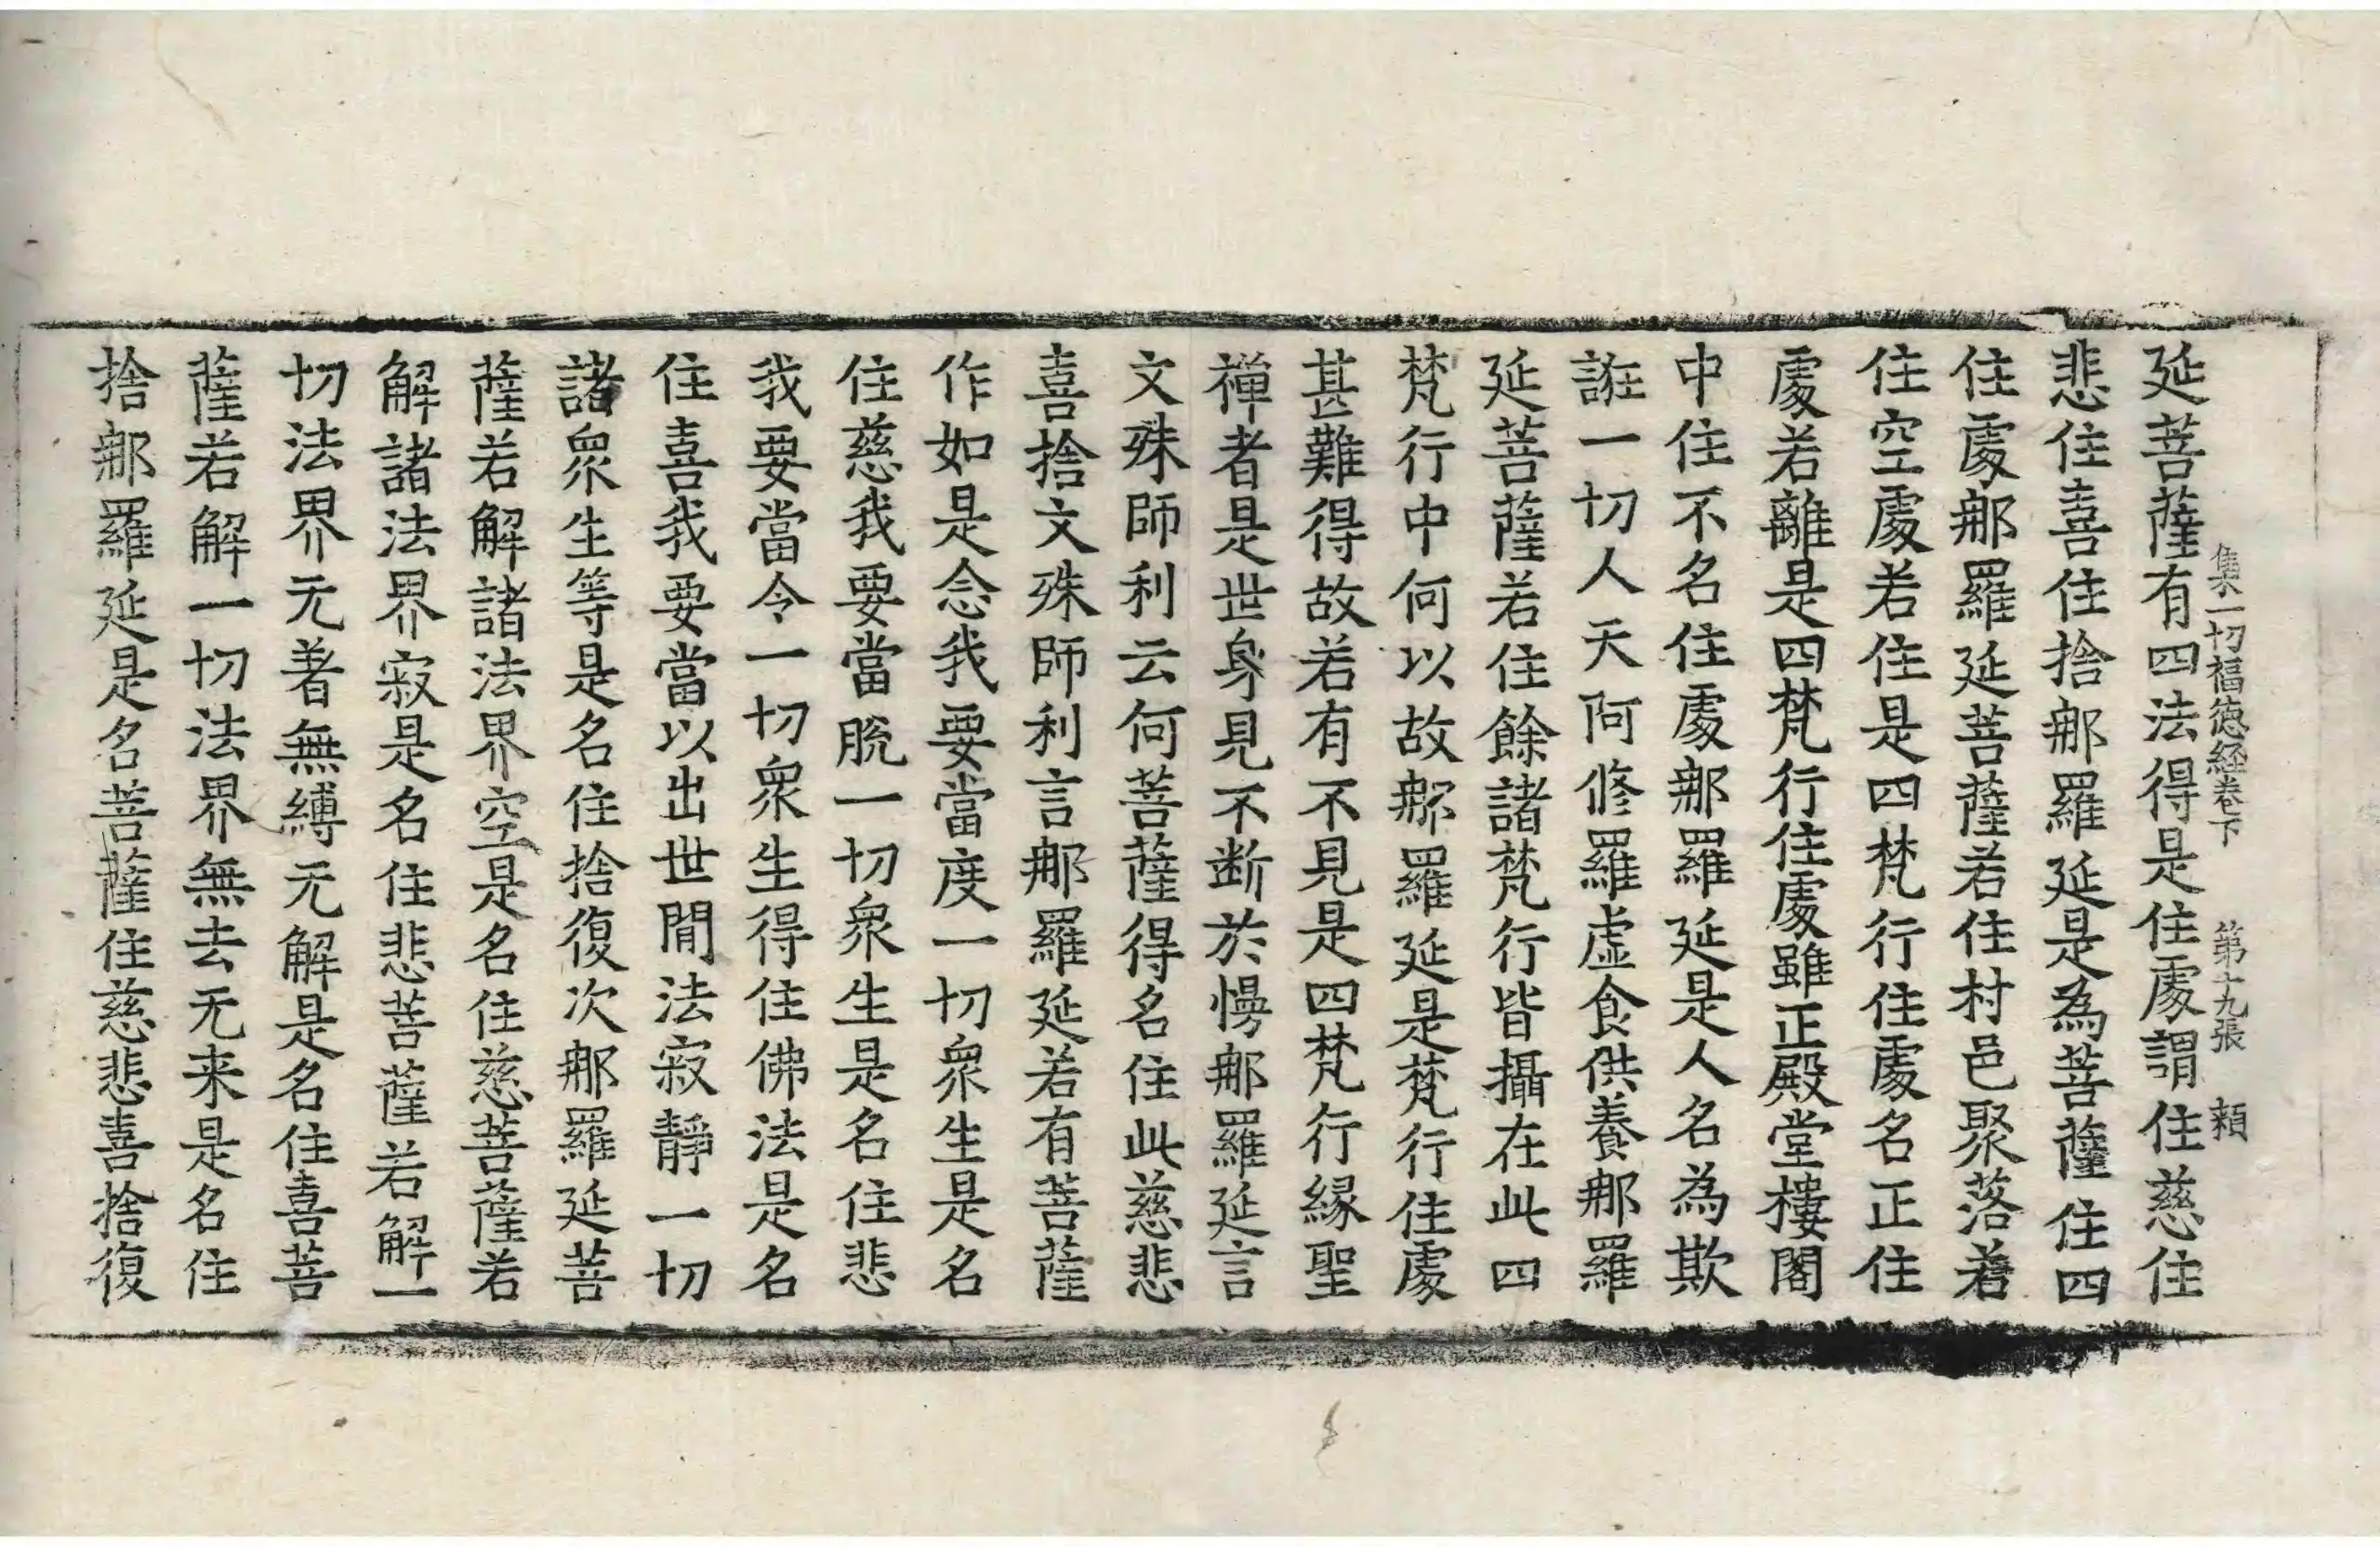 集一切福德經卷下　第十九張　頼
延菩薩有四法得是住處謂住慈住
悲住喜住捨那羅延是為菩薩住四
住處那羅延菩薩若住村邑聚落若
住空處若住是四梵行住處名正住
處若離是四梵行住處雖正殿堂樓閣
中住不名住處那羅延是人名為欺
誑一切人天阿修羅虛食供養那羅
延菩薩若住餘諸梵行皆攝在此四
梵行中何以故那羅延是梵行住處
甚難得故若有不見是四梵行緣聖
禪者是世身見不断於慢那羅延言
文殊師利云何菩薩得名住此慈悲
喜捨文殊師利言那羅延若有菩薩
作如是念我要當度一切衆生是名
住慈我要當脫一切衆生是名住悲
我要當令一切衆生得住佛法是名
住喜我要當以出世閒法寂靜一切
諸衆生等是名住捨復次那羅延菩
薩若解諸法界空是名住慈菩薩若
解諸法界寂是名住悲菩薩若解一
切法界无著無縛无解是名住喜菩
薩若解一切法界無去无来是名住
捨那羅延是名菩薩住慈悲喜捨復